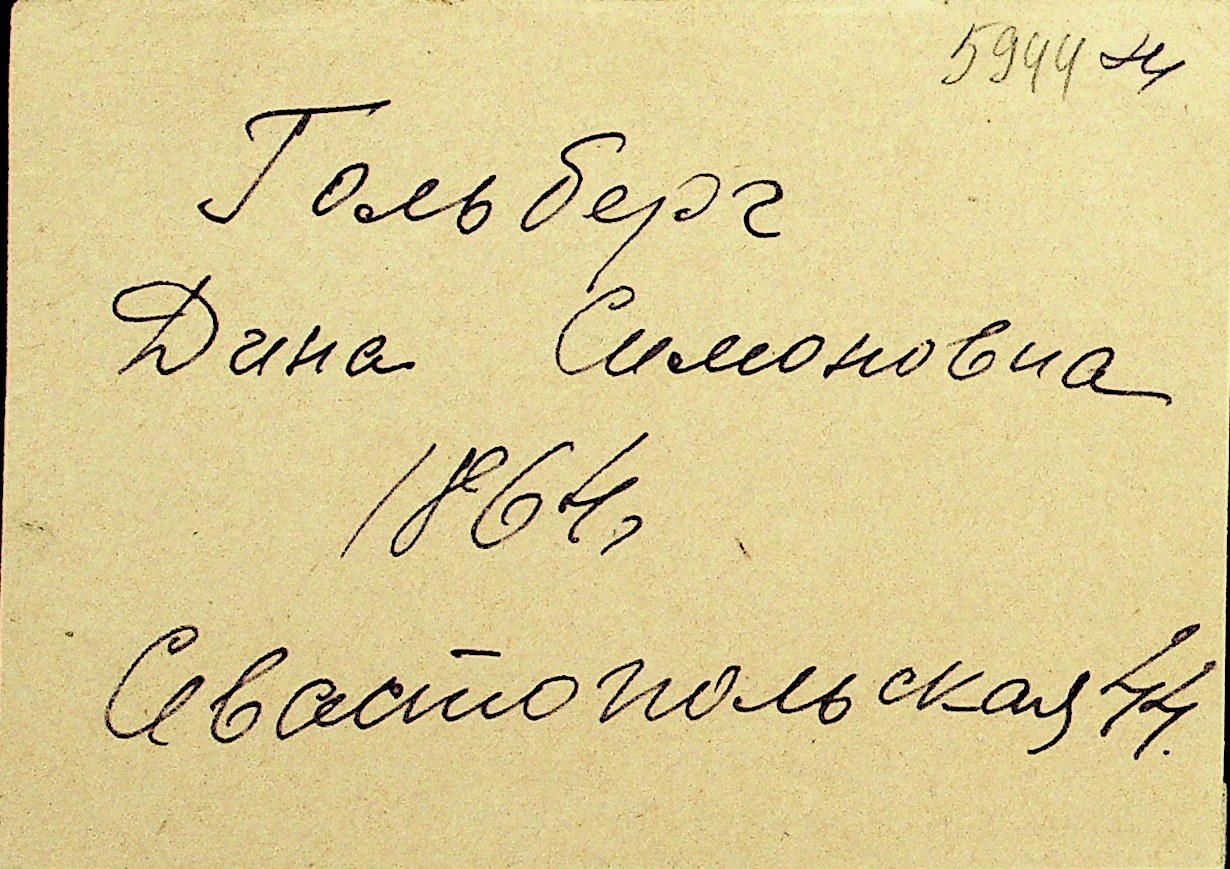 5944 н
Гольберг
Дина Симоновна
1864,
Севастопольская 44.